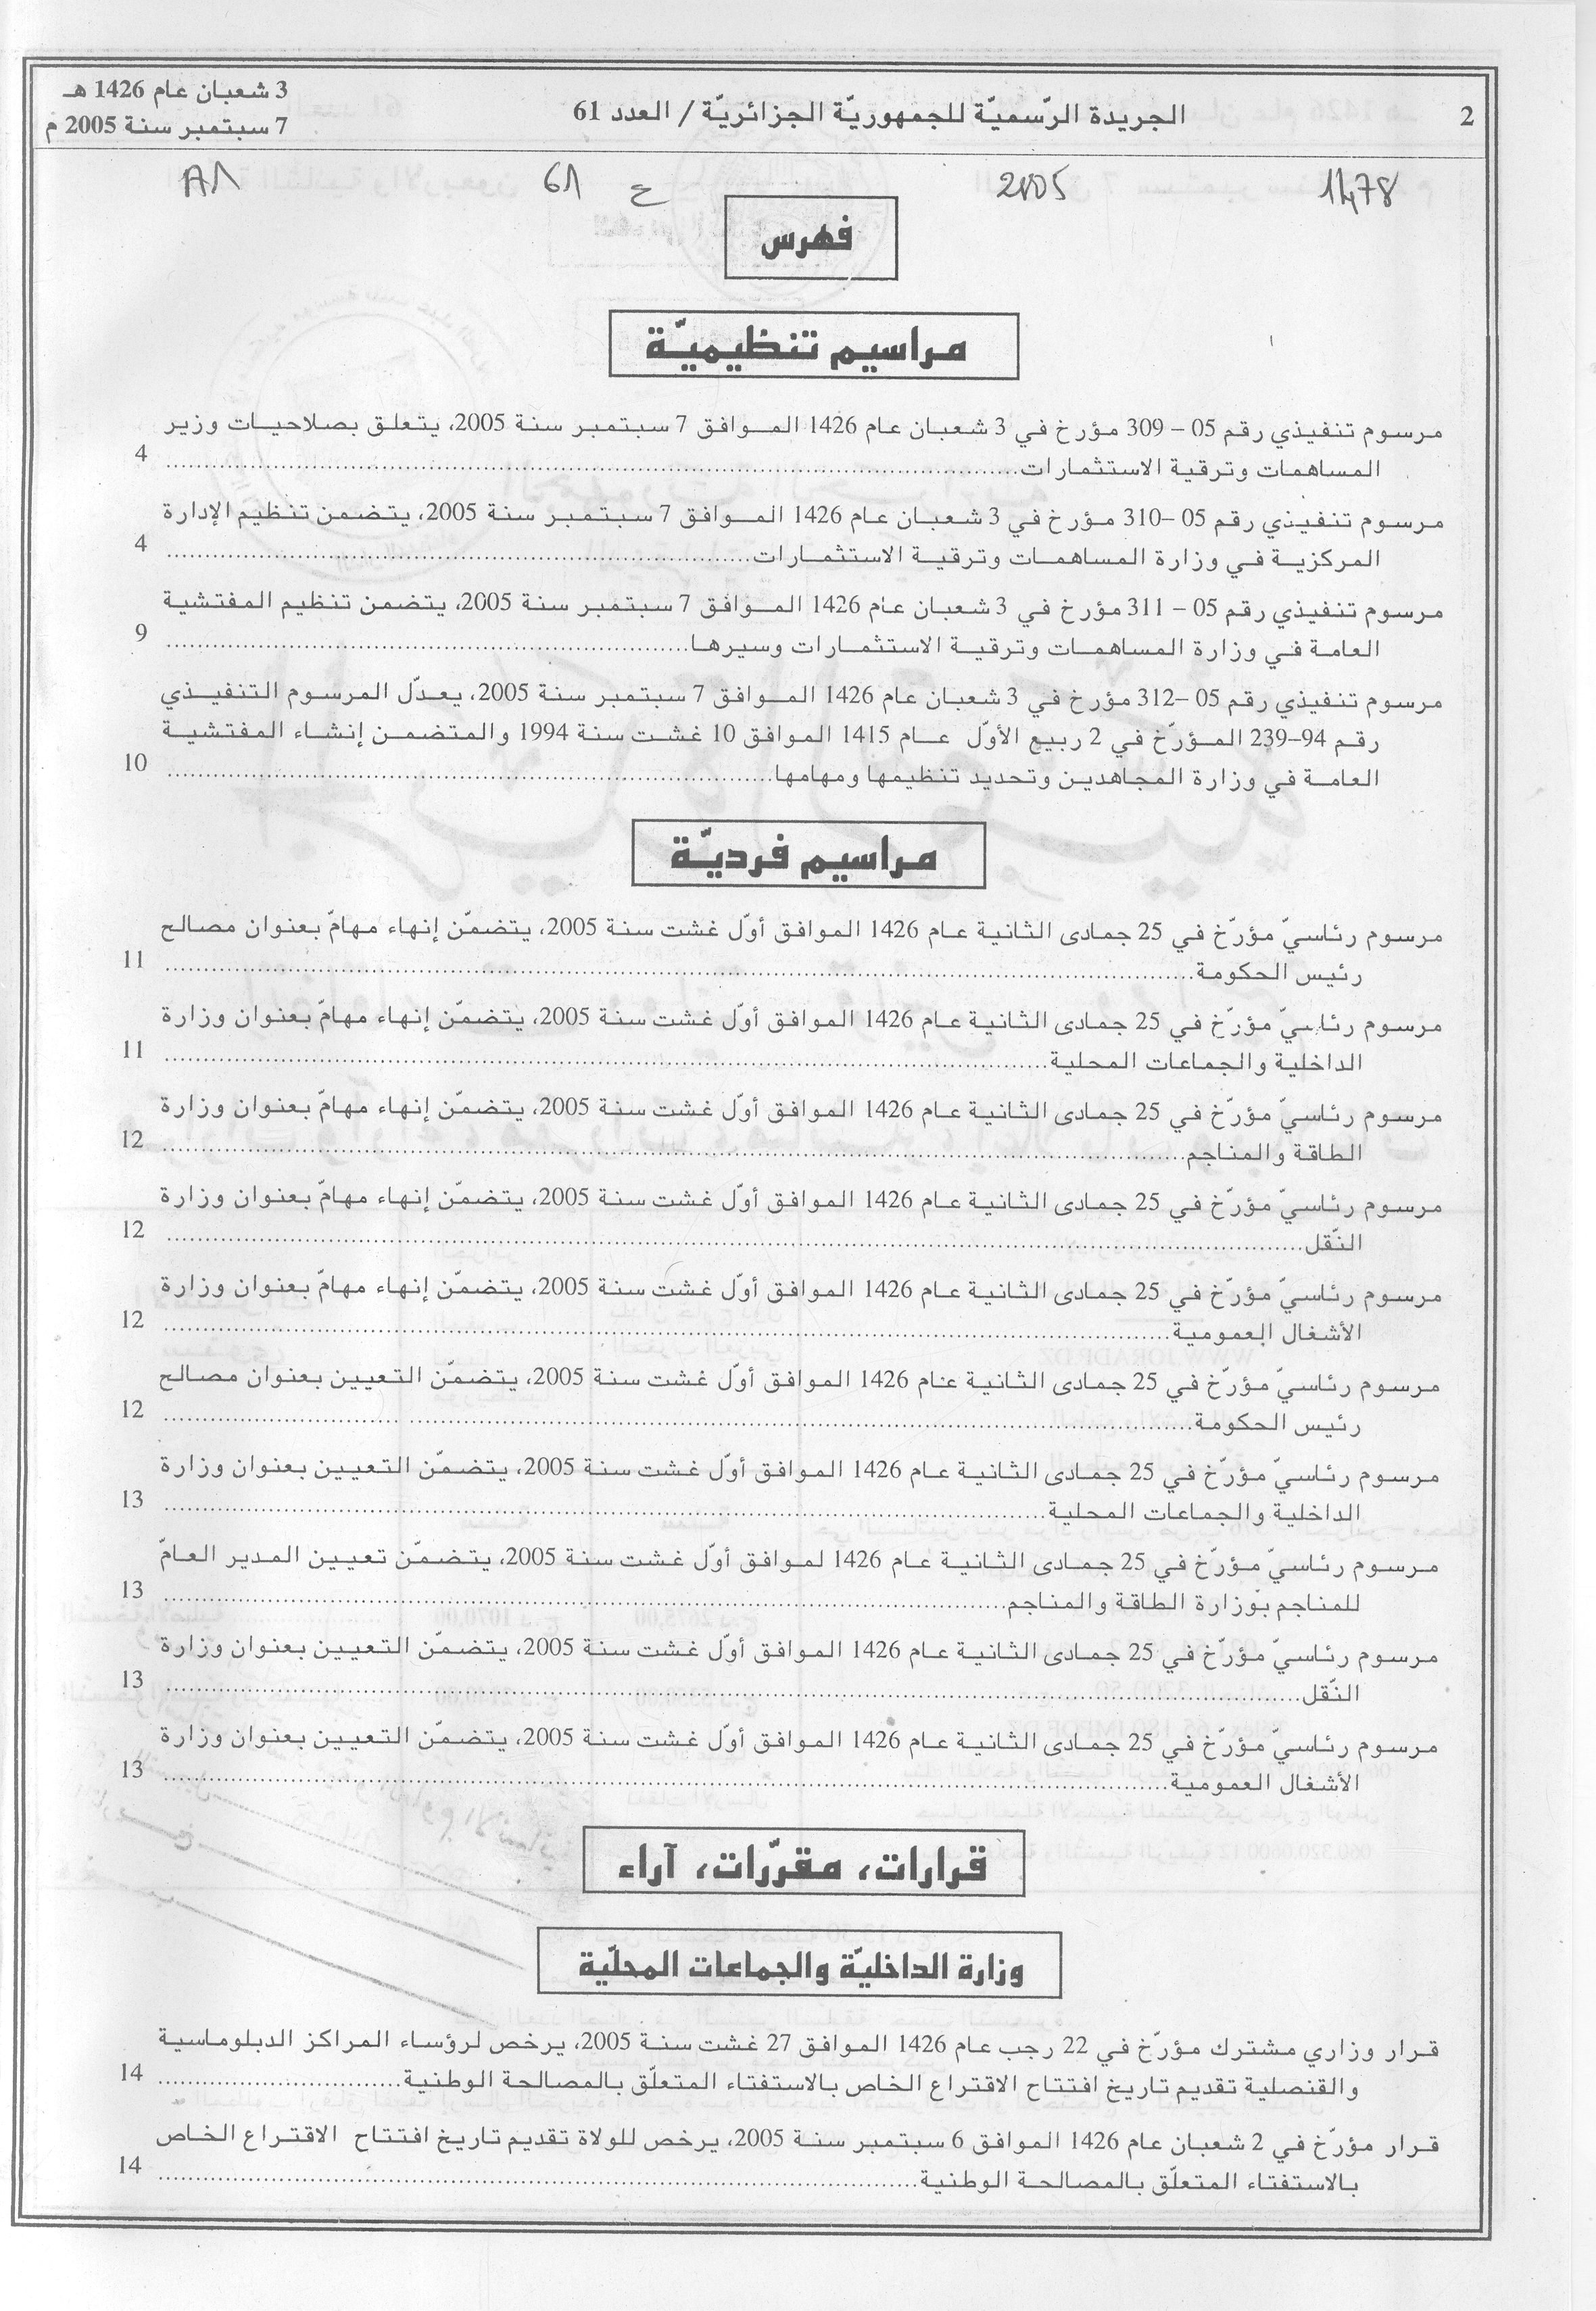 2
الجريدة الرّسميّة للجمهوريّة الجزائريّة / العدد 61
3 شعبان عام 1426 هـ
7 سبتمبر سنة 2005 م
1478 2005 ع 61 A1
فهرس
مراسيم تنظيميّة
مرسوم تنفيذي رقم 05 – 309 مؤرخ في 3 شعبان عام 1426 الموافق 7 سبتمبر سنة 2005، يتعلق بصلاحيات وزير
المساهمات وترقية الاستثمارات........................ 4
مرسوم تنفيذي رقم 05 –310 مؤرخ في 3 شعبان عام 1426 الموافق 7 سبتمبر سنة 2005، يتضمن تنظيم الإدارة
المركزية في وزارة المساهمات وترقية الاستثمارات........................ 4
مرسوم تنفيذي رقم 05 – 311 مؤرخ في 3 شعبان عام 1426 الموافق 7 سبتمبر سنة 2005، يتضمن تنظيم المفتشية
العامة في وزارة المساهمات وترقية الاستثمارات وسيرها........................ 9
مرسوم تنفيذي رقم 05 –312 مؤرخ في 3 شعبان عام 1426 الموافق 7 سبتمبر سنة 2005، يعدّل المرسوم التنفيذي
رقم 94–239 المؤرّخ في 2 ربيع الأوّل عام 1415 الموافق 10 غشت سنة 1994 والمتضمن إنشاء المفتشية
العامة في وزارة المجاهدين وتحديد تنظيمها ومهامها........................ 10
مراسيم فرديّة
مرسوم رئاسيّ مؤرّخ في 25 جمادى الثانية عام 1426 الموافق أوّل غشت سنة 2005، يتضمّن إنهاء مهامّ بعنوان مصالح
رئيس الحكومة........................ 11
مرسوم رئاسيّ مؤرّخ في 25 جمادى الثانية عام 1426 الموافق أوّل غشت سنة 2005، يتضمّن إنهاء مهامّ بعنوان وزارة
الداخلية والجماعات المحلية........................ 11
مرسوم رئاسيّ مؤرّخ في 25 جمادى الثانية عام 1426 الموافق أوّل غشت سنة 2005، يتضمّن إنهاء مهامّ بعنوان وزارة
الطاقة والمناجم........................ 12
مرسوم رئاسيّ مؤرّخ في 25 جمادى الثانية عام 1426 الموافق أوّل غشت سنة 2005، يتضمّن إنهاء مهامّ بعنوان وزارة
النّقل........................ 12
مرسوم رئاسيّ مؤرّخ في 25 جمادى الثانية عام 1426 الموافق أوّل غشت سنة 2005، يتضمّن إنهاء مهامّ بعنوان وزارة
الأشغال العمومية........................ 12
مرسوم رئاسيّ مؤرّخ في 25 جمادى الثانية عام 1426 الموافق أوّل غشت سنة 2005، يتضمّن التعيين بعنوان مصالح
رئيس الحكومة........................ 12
مرسوم رئاسيّ مؤرّخ في 25 جمادى الثانية عام 1426 الموافق أوّل غشت سنة 2005، يتضمّن التعيين بعنوان وزارة
الداخلية والجماعات المحلية........................ 13
مرسوم رئاسيّ مؤرّخ في 25 جمادى الثانية عام 1426 لموافق أوّل غشت سنة 2005، يتضمّن تعيين المدير العامّ
للمناجم بوزارة الطاقة والمناجم........................ 13
مرسوم رئاسيّ مؤرّخ في 25 جمادى الثانية عام 1426 الموافق أوّل غشت سنة 2005، يتضمّن التعيين بعنوان وزارة
النّقل........................ 13
مرسوم رئاسيّ مؤرّخ في 25 جمادى الثانية عام 1426 الموافق أوّل غشت سنة 2005، يتضمّن التعيين بعنوان وزارة
الأشغال العمومية........................ 13
قرارات، مقرّرات، آراء
وزارة الداخليّة والجماعات المحلّية
قرار وزاري مشترك مؤرّخ في 22 رجب عام 1426 الموافق 27 غشت سنة 2005، يرخص لرؤساء المراكز الدبلوماسية
والقنصلية تقديم تاريخ افتتاح الاقتراع الخاص بالاستفتاء المتعلّق بالمصالحة الوطنية........................ 14
قرار مؤرّخ في 2 شعبان عام 1426 الموافق 6 سبتمبر سنة 2005، يرخص للولاة تقديم تاريخ افتتاح الاقتراع الخاص
بالاستفتاء المتعلّق بالمصالحة الوطنية........................ 14